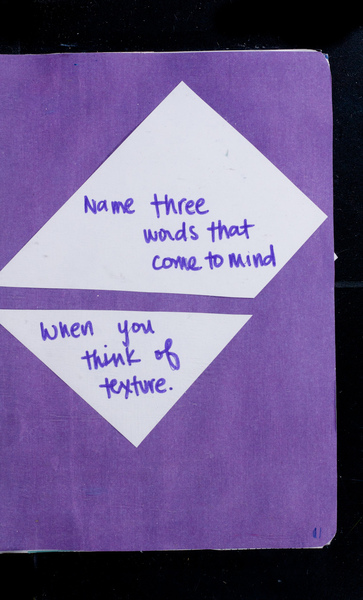 Name three
words that
come to mind
when you
think of
texture.